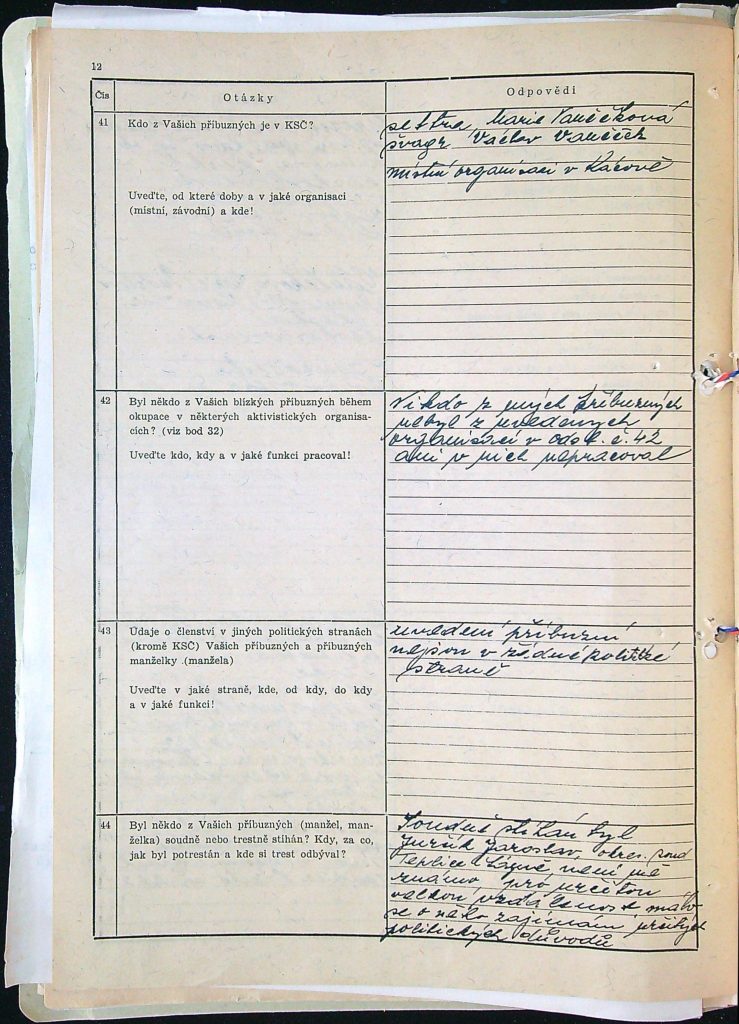 12
Čís
Otázky
Odpovědi
41
Kdo z Vašich příbuzných je v KSČ?
Uveďte, od které doby a v jaké organisaci
(místní, závodní) a kde!
sestra, Marie Vaněčková
švagr Václav Vaněček
místní organisaci v Kácově
42
Byl někdo z Vašich blízkých příbuzných během
okupace v některých aktivistických organisa-
cích? (viz bod 32)
Uveďte kdo, kdy a v jaké funkci pracoval!
Nikdo z mých příbuzných
nebyl z uvedených
organisací v odst. č. 42
ani v nich nepracoval
43
Údaje o členství v jiných politických stranách
(kromě KSČ) Vašich příbuzných a příbuzných
manželky (manžela)
Uveďte v jaké straně, kde, od kdy, do kdy
a v jaké funkci!
uvedení příbuzní
nejsou v žádné politické
straně
44
Byl někdo z Vašich příbuzných (manžel, man-
želka) soudně nebo trestně stíhán? Kdy, za co,
jak byl potrestán a kde si trest odbýval?
Soudně stíhán byl
Jaroslav, okres. soud
Teplice Lázně, není mě
známo, pro určitou
velkou vzdálenost málo
se o něho zajímám, určitých
politických důvodů